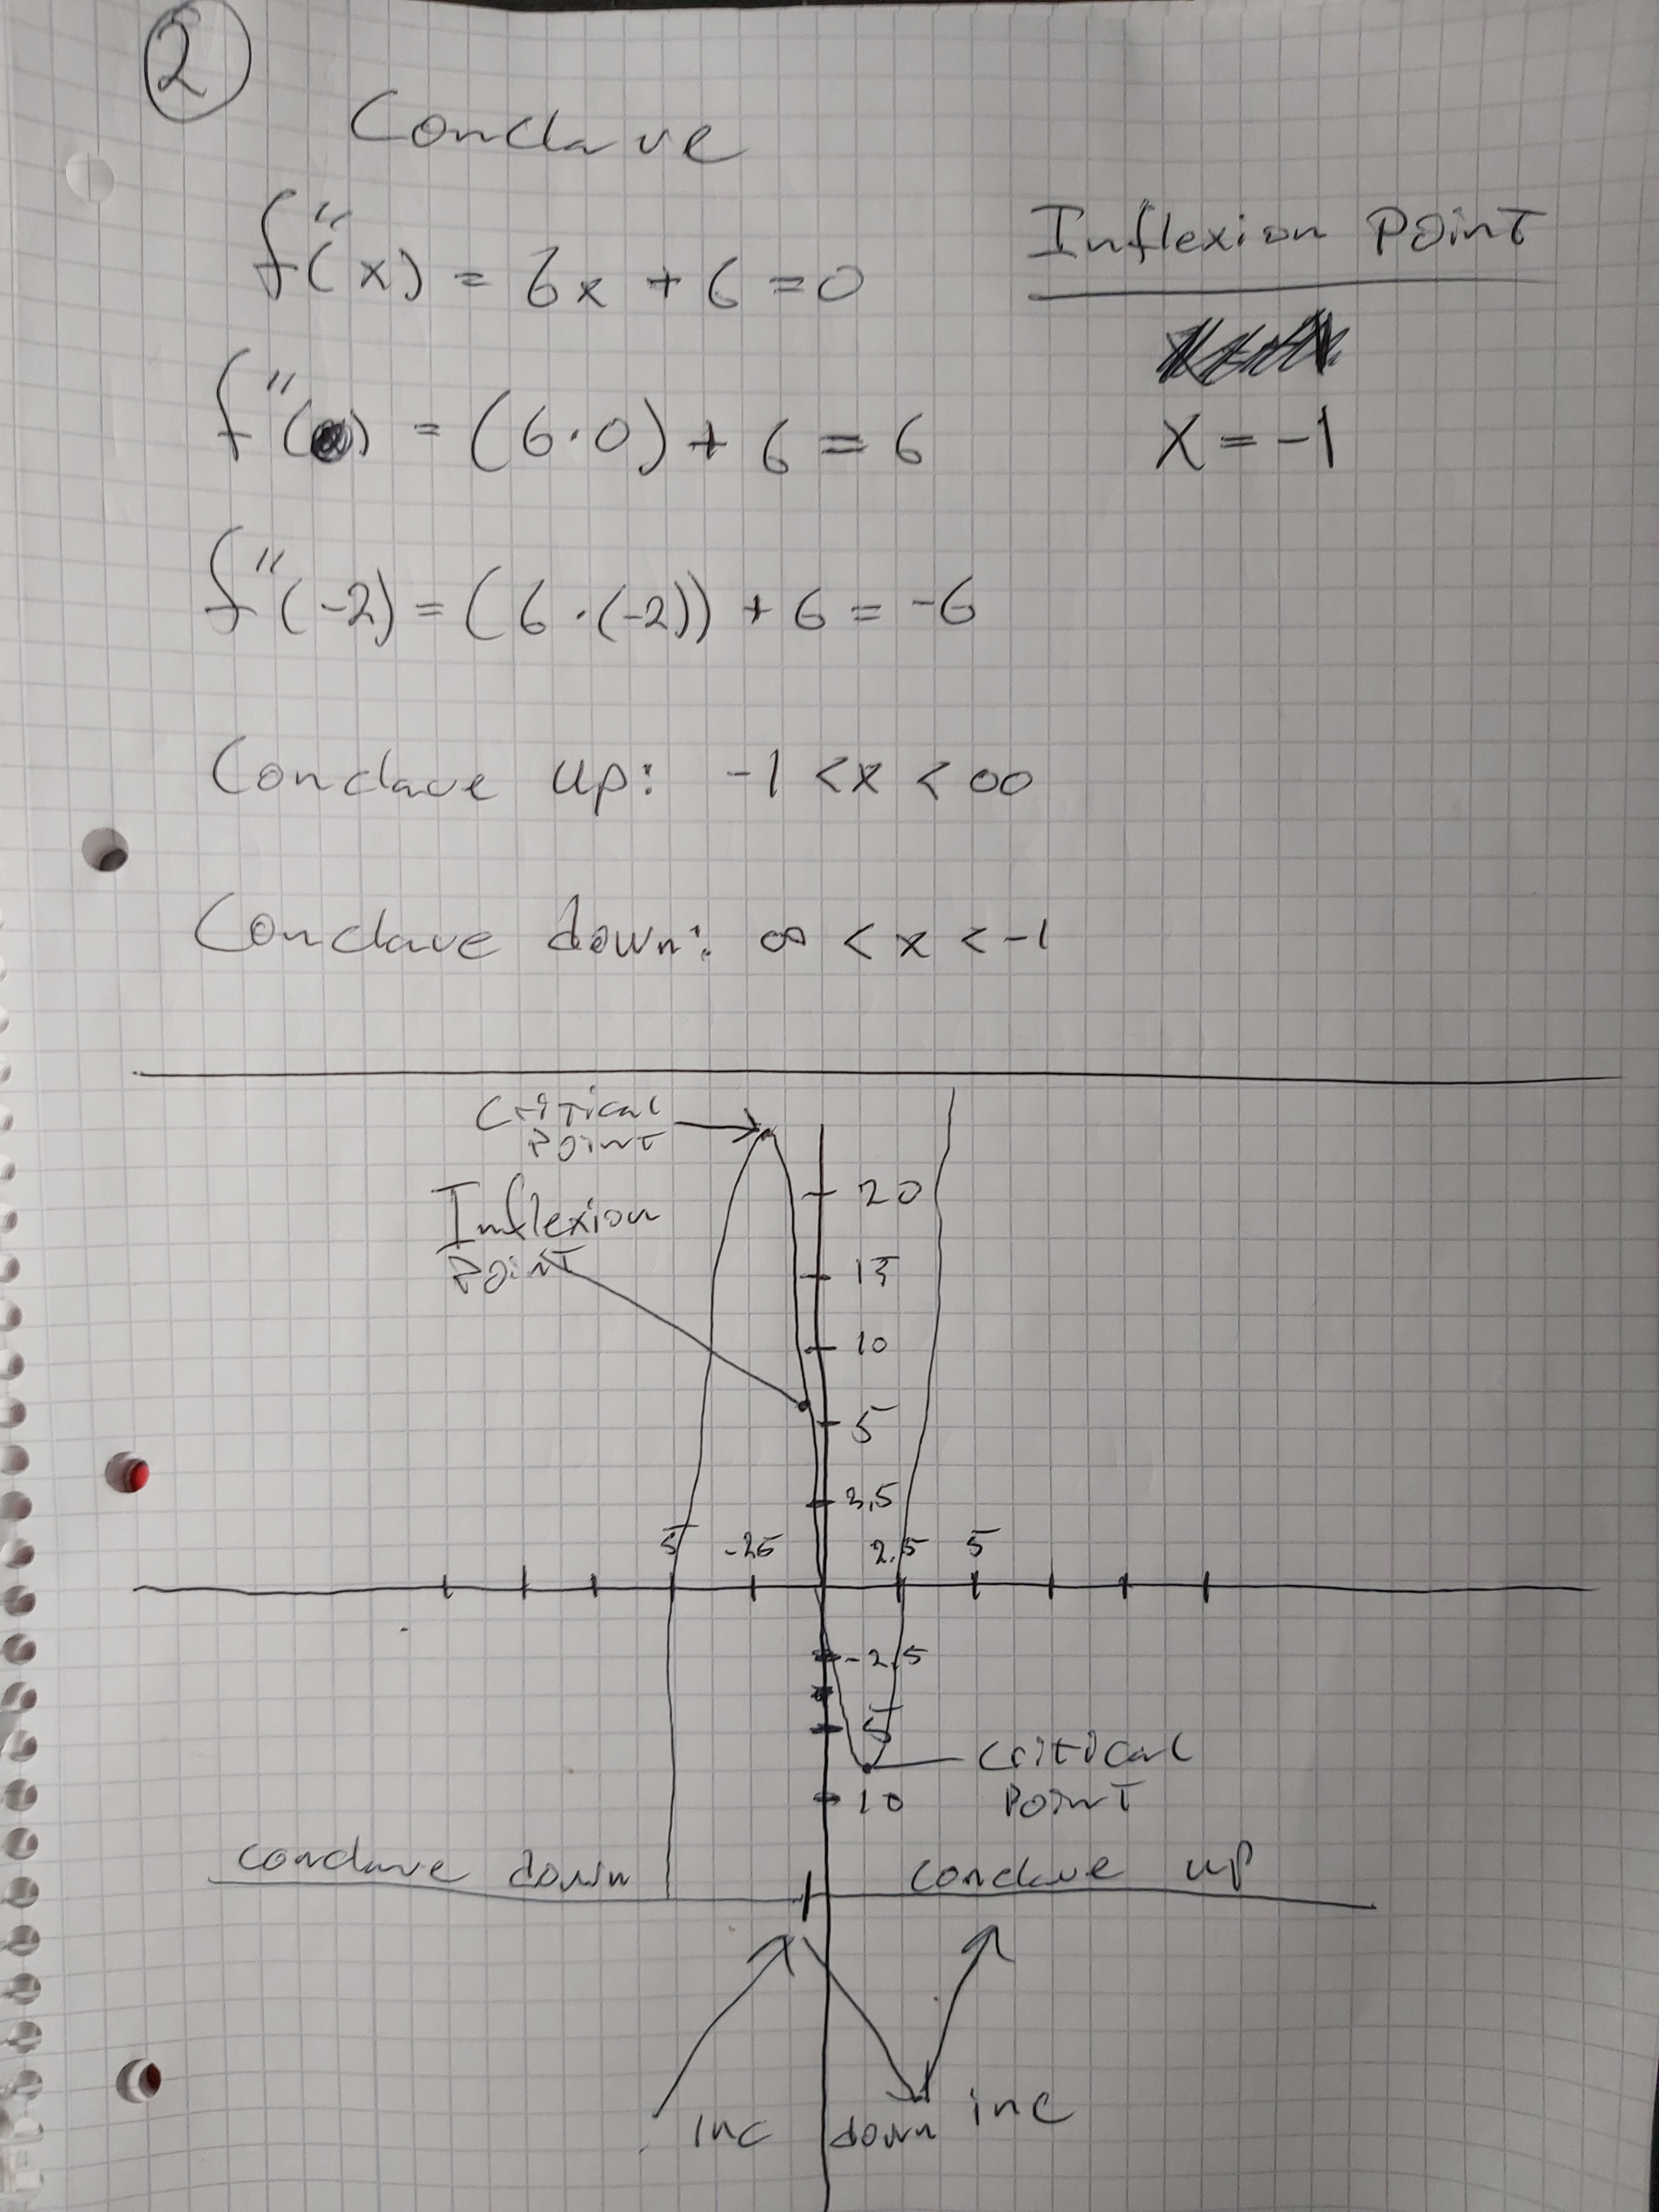 2
Conclave
f"(x) = 6x + 6 = 0
Inflexion Point
f"(0) = (6·0) + 6 = 6
x = -1
f"(-2) = (6·(-2)) + 6 = -6
Conclave up: -1 < x < ∞
Conclave down: ∞ < x < -1
Critical
Point
20
Inflexion
Point
15
10
5
3,5
5 -25 2.5 5
-2.5
5
Critical
10 Point
conclave down conclave up
inc down inc